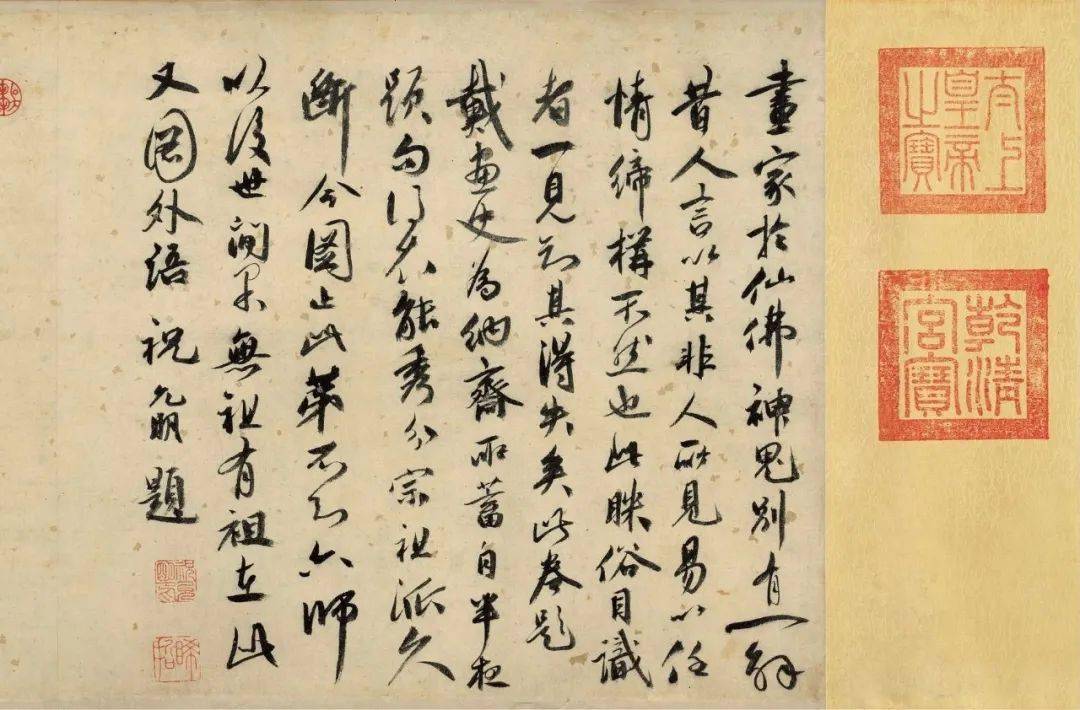 太上
皇帝
之寶
乾清
宮寶
畫家於仙佛神鬼別有一解
昔人言以其非人所見易以任
情締構不然也此眯俗目識
者一見知其得失矣此卷題
戴畫史為納齋所蓄自半夜
題句得衣能秀分宗祖派久
斷今圖止此第不知六師
以後世間果無祖有祖在此
又圖外語祝允明題